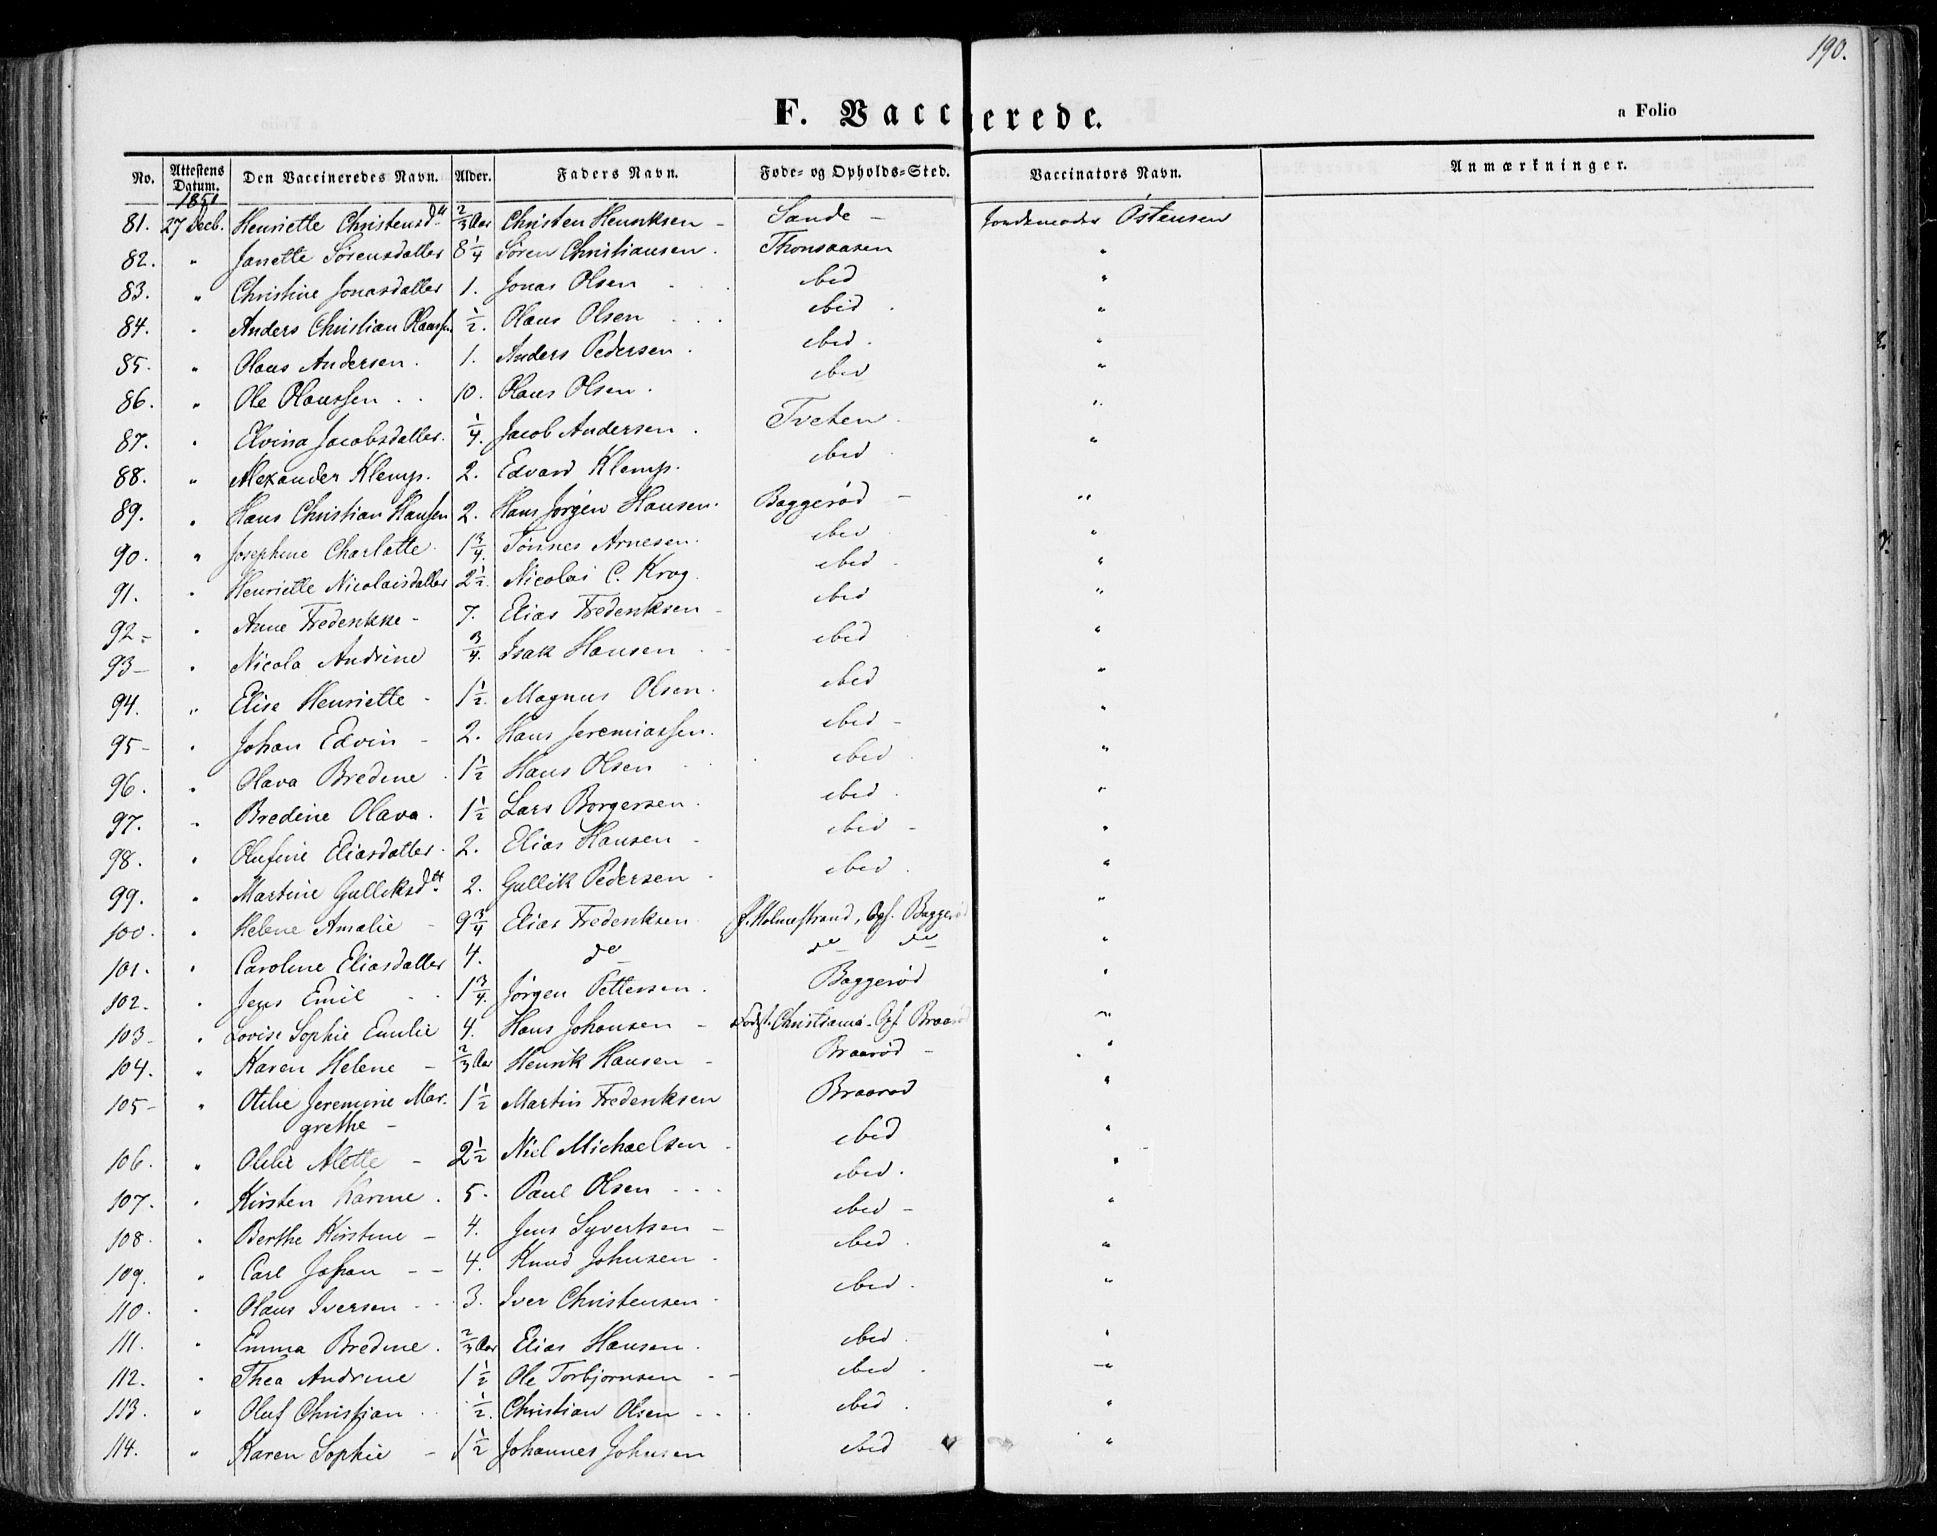 190.
F. Vaccinerede.
a Folio
No. Attestens Datum. Den Vaccineredes Navn. Alder. Faders Navn. Føde- og Opholds-Sted. Vaccinators Navn. Anmærkninger.
1851
81. 27 Decb. Henriette Christensdtt 2/3 Aar Christen Henriksen - Sande - Jordemoder Østensen
82. " Janette Sørensdatter 8 1/4 Søren Christiansen. Thonsaasen "
83. " Christine Jonasdatter 1. Jonas Olsen ibid "
84. " Anders Christian Olaussen 1/2. Olaus Olsen ibid. "
85. " Olaus Andersen. 1. Anders Pedersen. ibid. "
86. " Ole Olaussen 10. Olaus Olsen. ibid "
87. " Elvina Jacobsdatter. 1/4. Jacob Andersen. Tveten. "
88. " Alexander Klemp. 2. Edvard Klemp. ibid "
89. " Hans Christian Hansen 2. Hans Jørgen Hansen. Baggerød - "
90. " Josephine Charlotte. 1 3/4. Tønnes Arnesen. ibid "
91. " Henriette Nicolaisdatter 2 1/2. Nicolai C. Krog. ibid - "
92 - " Anne Frederikke - 7. Elias Frederiksen - ibid "
93 - " Nicola Andrine 3/4. Isak Hansen ibid "
94. " Elise Henriette - 1 1/2. Magnus Olsen. ibid "
95 - " Johan Edvin - 2. Hans Jeremiassen. ibid - "
96. " Olava Bredine. 1 1/2 Hans Olsen ibid "
97. " Bredine Olava. 1 1/2 Lars Borgersen. ibid. "
98. " Olufine Eliasdatter. 2. Elias Hansen - ibid - "
99. " Martine Gulliksdtt 2. Gullik Pedersen. ibid. "
100. " Helene Amalie - 9 3/4 Elias Frederiksen. f. Holmestrand, Opf. Baggerød "
101. " Caroline Eliasdatter 4. do do do "
102. " Jens Emil 1 3/4. Jørgen Pettersen. Baggerød "
103 - " Lovise Sophie Emilie 4. Hans Johansen - Fødst. Christiania. Opf. Braarød "
104. " Karen Helene - 2/3 Aar Henrik Hansen - Braarød - "
105 - " Otilie Jeremine Mar- 1 1/2 Martin Frederiksen Braarød "
grethe -
106. " Otilie Alette - 2 1/2 Niel Michaelsen. ibid "
107. " Kirsten Karine. 5. Paul Olsen ibid. "
108. " Berthe Kirstine - 4. Jens Syvertsen - ibid - "
109. " Carl Johan - - 4. Knud Johnsen. ibid. "
110. " Olaus Iversen 3. Iver Christensen. ibid. "
111. " Emma Bredine. 2/3 Aar Elias Hansen. ibid. "
112. " Thea Andrine 1 1/2 Ole Torbjørnsen - - ibid. "
113. " Oluf Christian 1/2. Christian Olsen - ibid. "
114. " Karen Sophie - 1 1/2 Johannes Johnsen ibid "